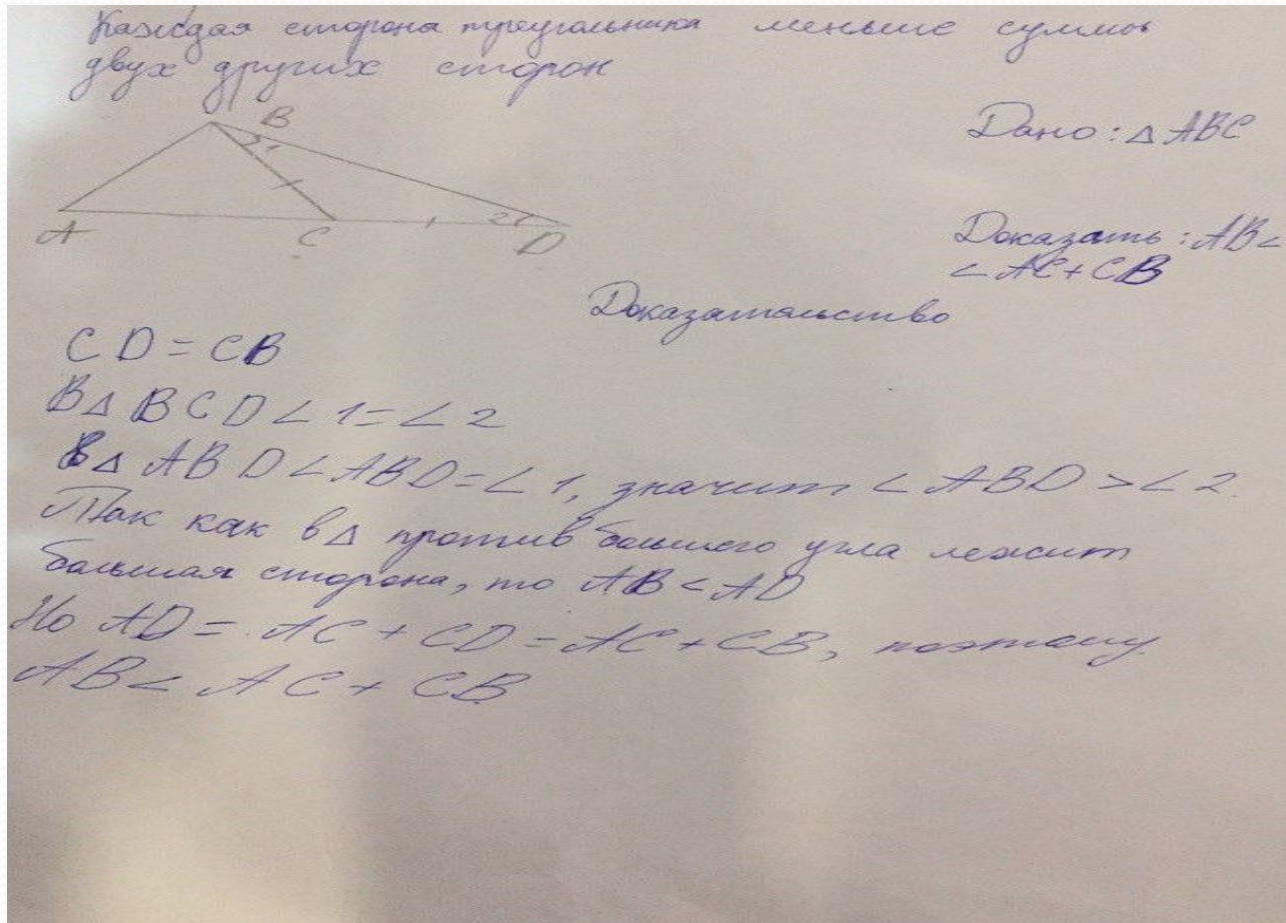 Каждая сторона треугольника меньше суммы
двух других сторон
B
1
A
C
2
D
Дано: △ ABC
Доказать: AB <
< AC + CB
Доказательство
CD = CB
В △ BCD ∠ 1 = ∠ 2
В △ ABD ∠ ABD = ∠ 1, значит ∠ ABD > ∠ 2.
Так как в △ против большего угла лежит
большая сторона, то AB < AD
Но AD = AC + CD = AC + CB, поэтому
AB < AC + CB